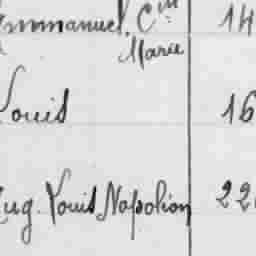 Emmanuel, C^in 14
Marie
Louis 16
Eug. Louis Napoléon 22